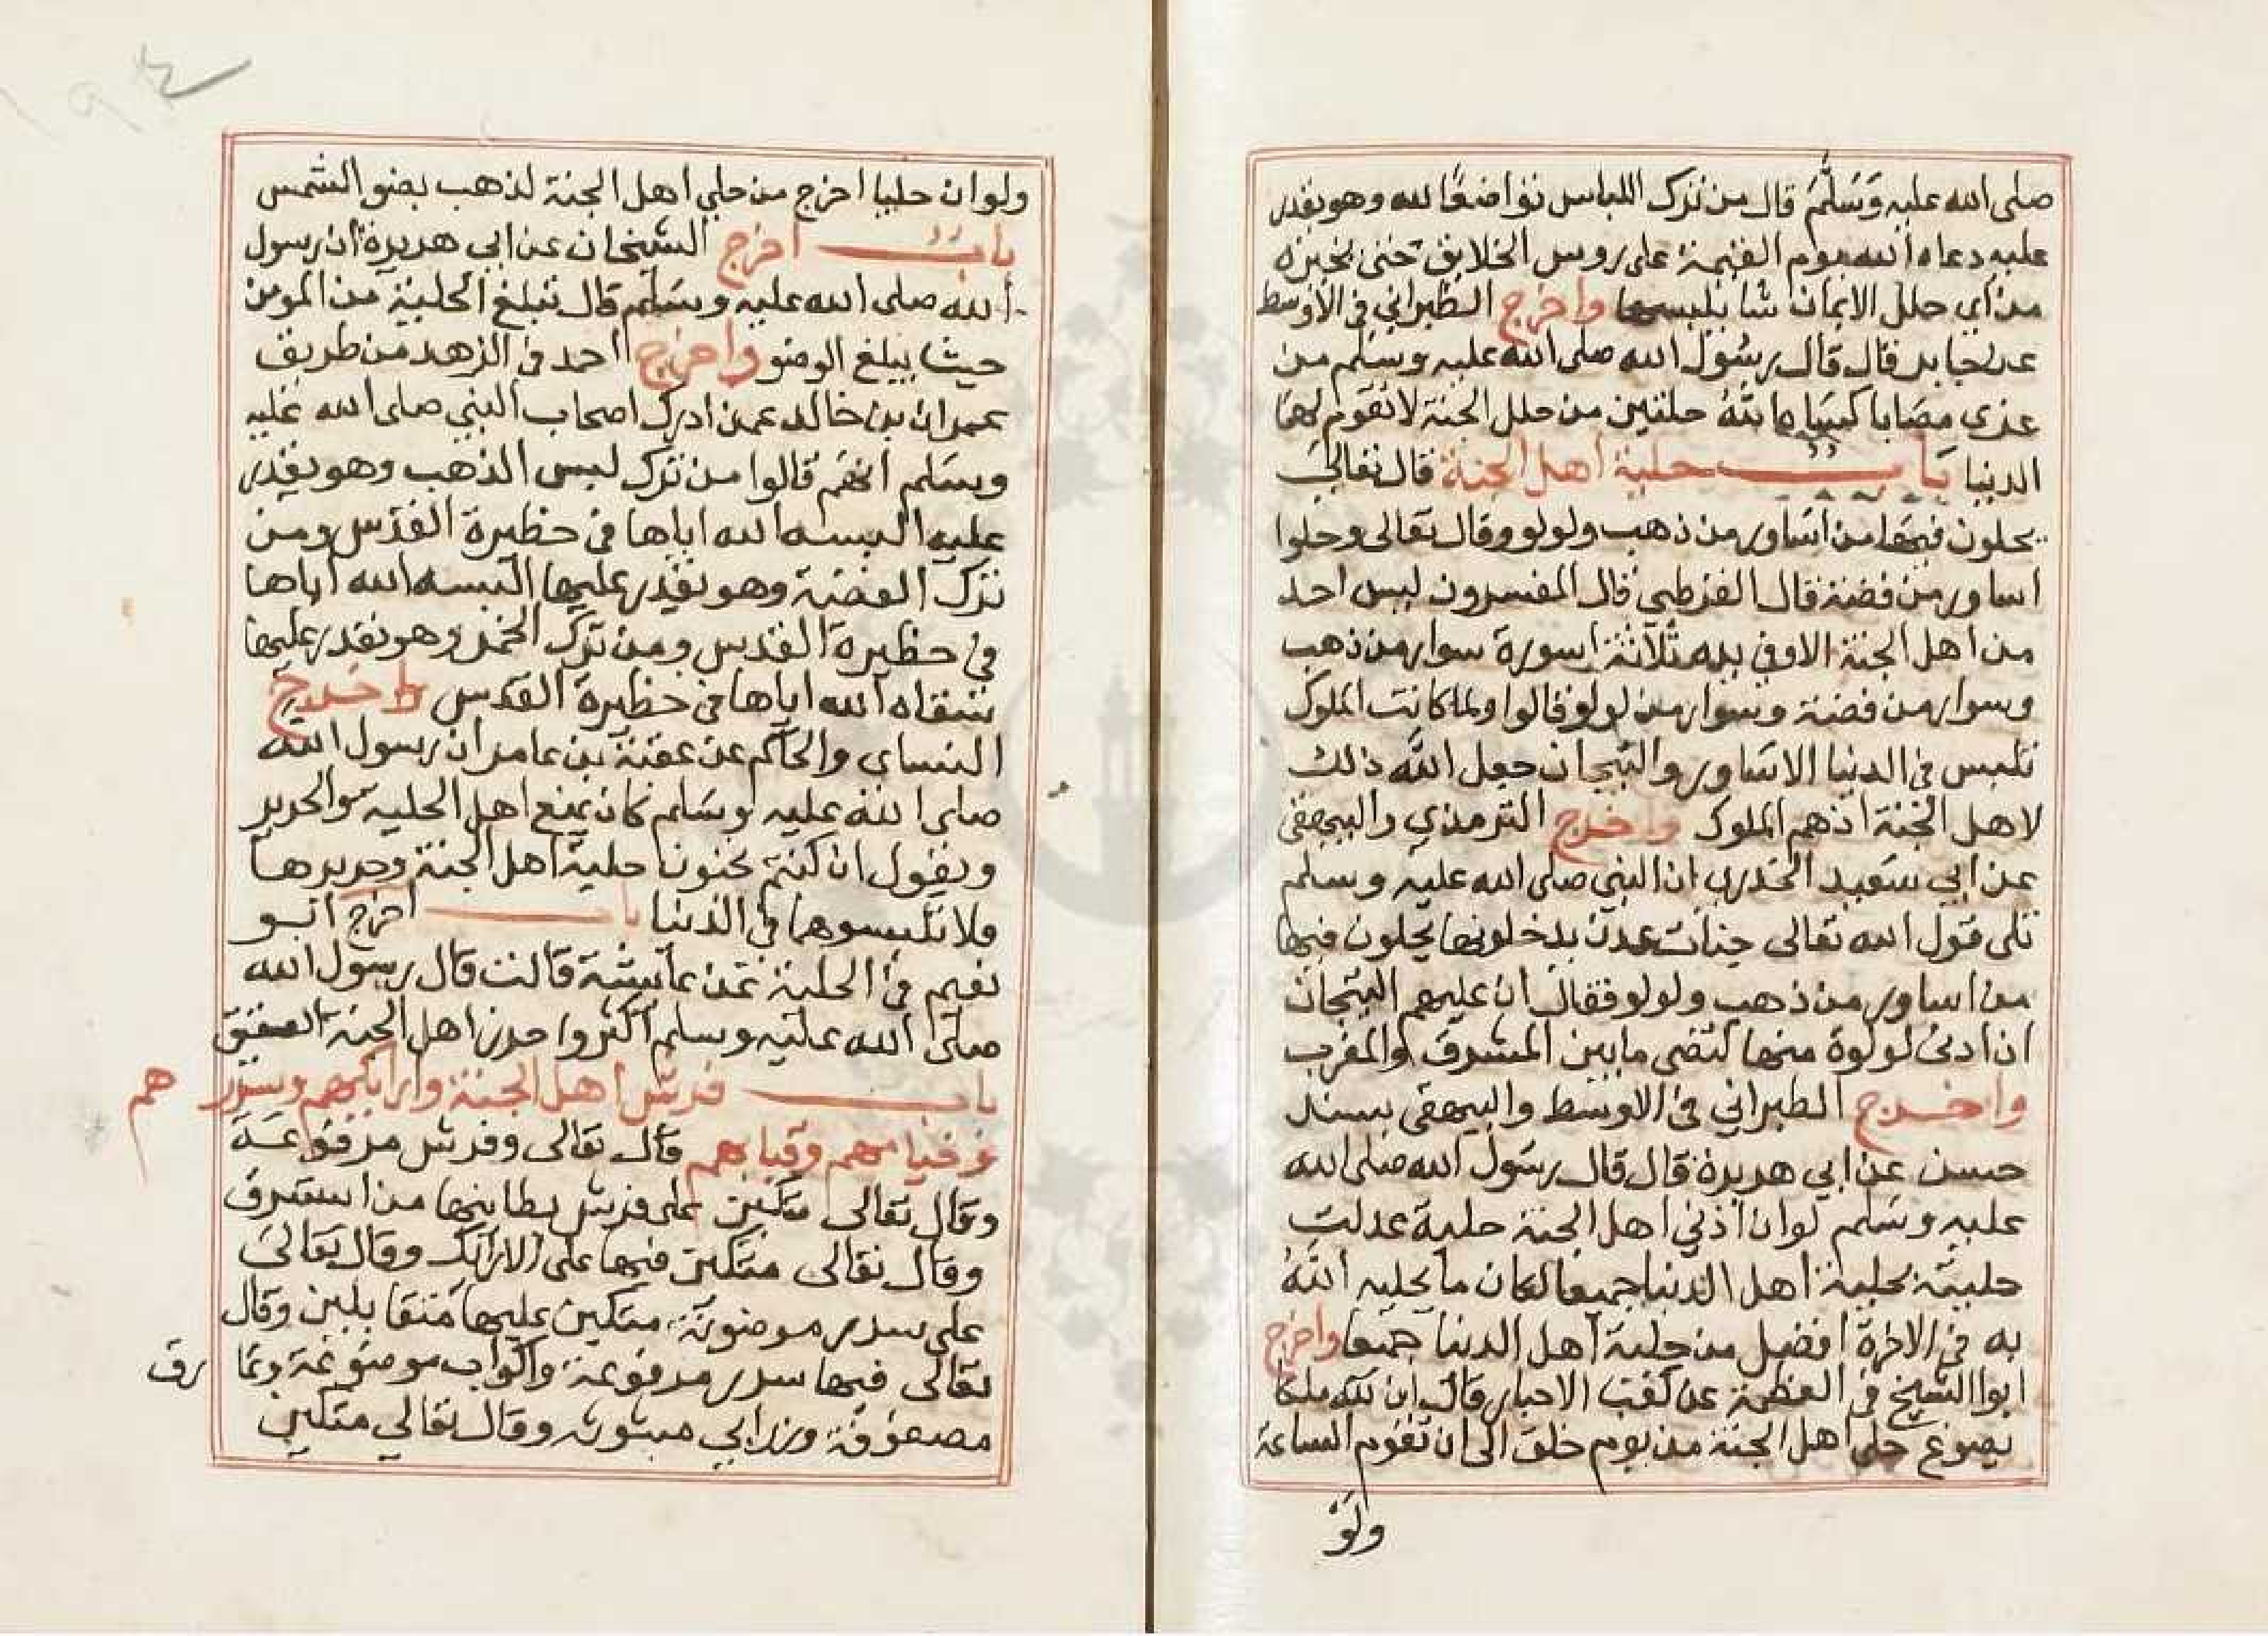 صلى الله عليه وسلم قال من ترك اللباس تواضعا لله وهو يقدر
عليه دعاه الله يوم القيمة على روس الخلايق حتى يخيره
من اي حلل الايمان شا يلبسها واخرج الطبراني في الاوسط
عن جابر قال قال رسول الله صلى الله عليه وسلم من
عزى مصابا كساه الله حلتين من حلل الجنة لا تقوم لهما
الدنيا باب حلية اهل الجنة قال تعالى
يحلون فيها من اساور من ذهب ولولو وقال تعالى وحلوا
اساور من فضة قال القرطبي قال المفسرون ليس احد
من اهل الجنة الا وفي يده ثلاثة اسورة سوار من ذهب
وسوار من فضة وسوار من لولو قالوا ولما كانت الملوك
تلبس في الدنيا الاساور والتيجان جعل الله ذلك
لاهل الجنة اذ هم الملوك واخرج الترمذي والبيهقي
عن ابي سعيد الخدري ان النبي صلى الله عليه وسلم
تلى قول الله تعالى جنات عدن يدخلونها يحلون فيها
من اساور من ذهب ولولو فقال ان عليهم التيجان
ان ادنى لولوة منها لتضى ما بين المشرق والمغرب
واخرج الطبراني في الاوسط والبيهقي بسند
حسن عن ابي هريرة قال قال رسول الله صلى الله
عليه وسلم لو ان ادني اهل الجنة حلية عدلت
حليته بحلية اهل الدنيا جميعا لكان ما يحليه الله
به في الاخرة افضل من حلية اهل الدنيا جميعا واخرج
ابوا الشيخ في العظمة عن كعب الاحبار قال ان لله ملكا
يصوغ حلي اهل الجنة من يوم خلق الى ان تقوم الساعة
ولو
ولو ان حليا اخرج من حلي اهل الجنة لذهب بضو الشمس
باب اخرج الشيخان عن ابي هريرة ان رسول
الله صلى الله عليه وسلم قال تبلغ الحلية من المومن
حيث يبلغ الوضو واخرج احمد في الزهد من طريق
عمران بن خالد عمن ادرك اصحاب النبي صلى الله عليه
وسلم انهم قالوا من ترك لبس الذهب وهو يقدر
عليه البسه الله اياها في حظيرة القدس ومن
ترك الفضة وهو يقدر عليها البسه الله اياها
في حظيرة القدس ومن ترك الخمر وهو يقدر عليها
سقاه الله اياها في حظيرة القدس واخرج
النساي والحاكم عن عقبة بن عامر ان رسول الله
صلى الله عليه وسلم كان يمنع اهل الحلية والحرير
ويقول ان كنتم تحبون حلية اهل الجنة وحريرها
فلا تلبسوهما في الدنيا باب اخرج ابو
نعيم في الحلية عن عايشة قالت قال رسول الله
صلى الله عليه وسلم اكثروا حرز اهل الجنة العقيق
باب فرش اهل الجنة وارايكهم وسررهم
وخيامهم وقبابهم قال تعالى وفرش مرفوعة
وقال تعالى متكين على فرش بطاينها من استبرق
وقال تعالى متكين فيها على الارايك وقال تعالى
على سرر موضونة متكين عليها متقابلين وقال
تعالى فيها سرر مرفوعة واكواب موضوعة ونمارق
مصفوفة وزرابي مبثوثة وقال تعالي متكين